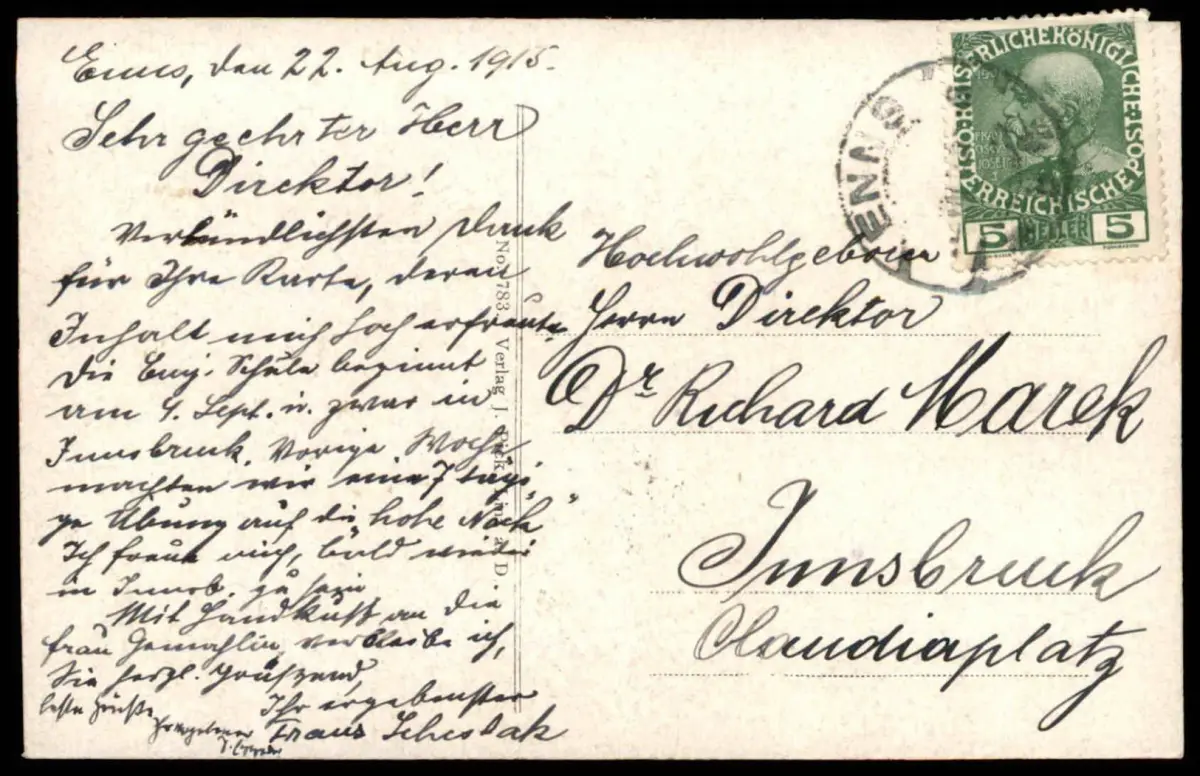 Enns, den 22. Aug. 1915.
Sehr geehrter Herr
Direktor!
Verbindlichsten Dank
für Ihre Karte, deren
Inhalt mich hoch erfreute.
Die Schule beginnt
am 1. Sept. u. zwar in
Innsbruck. Vorige Woche
machten wir eine 7 tägi-
ge Übung auf die "hohe Nock"
Ich freue mich, bald wieder
in Innsb. zu sein
Mit Handkuß an die
Frau Gemahlin, verbleibe ich,
Sie herzl. grüßend,
Ihr ergebenster
Franz
beste Grüße
No. 783. Verlag J. Pick, in a. D.
Hochwohlgeboren
Herrn Direktor
Dr Richard Marek
Innsbruck
Claudiaplatz
ENNS
KAISERLICHE KÖNIGLICHE ÖSTERREICHISCHE POST
5 HELLER 5